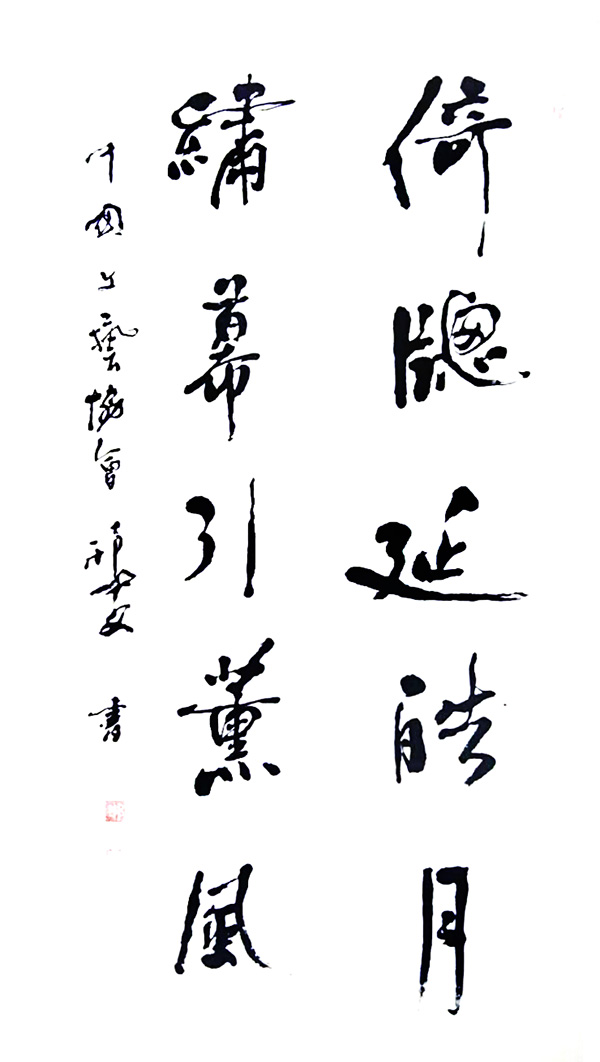 倚牕延皓月
繡幕引薰風
中國文藝協會 書